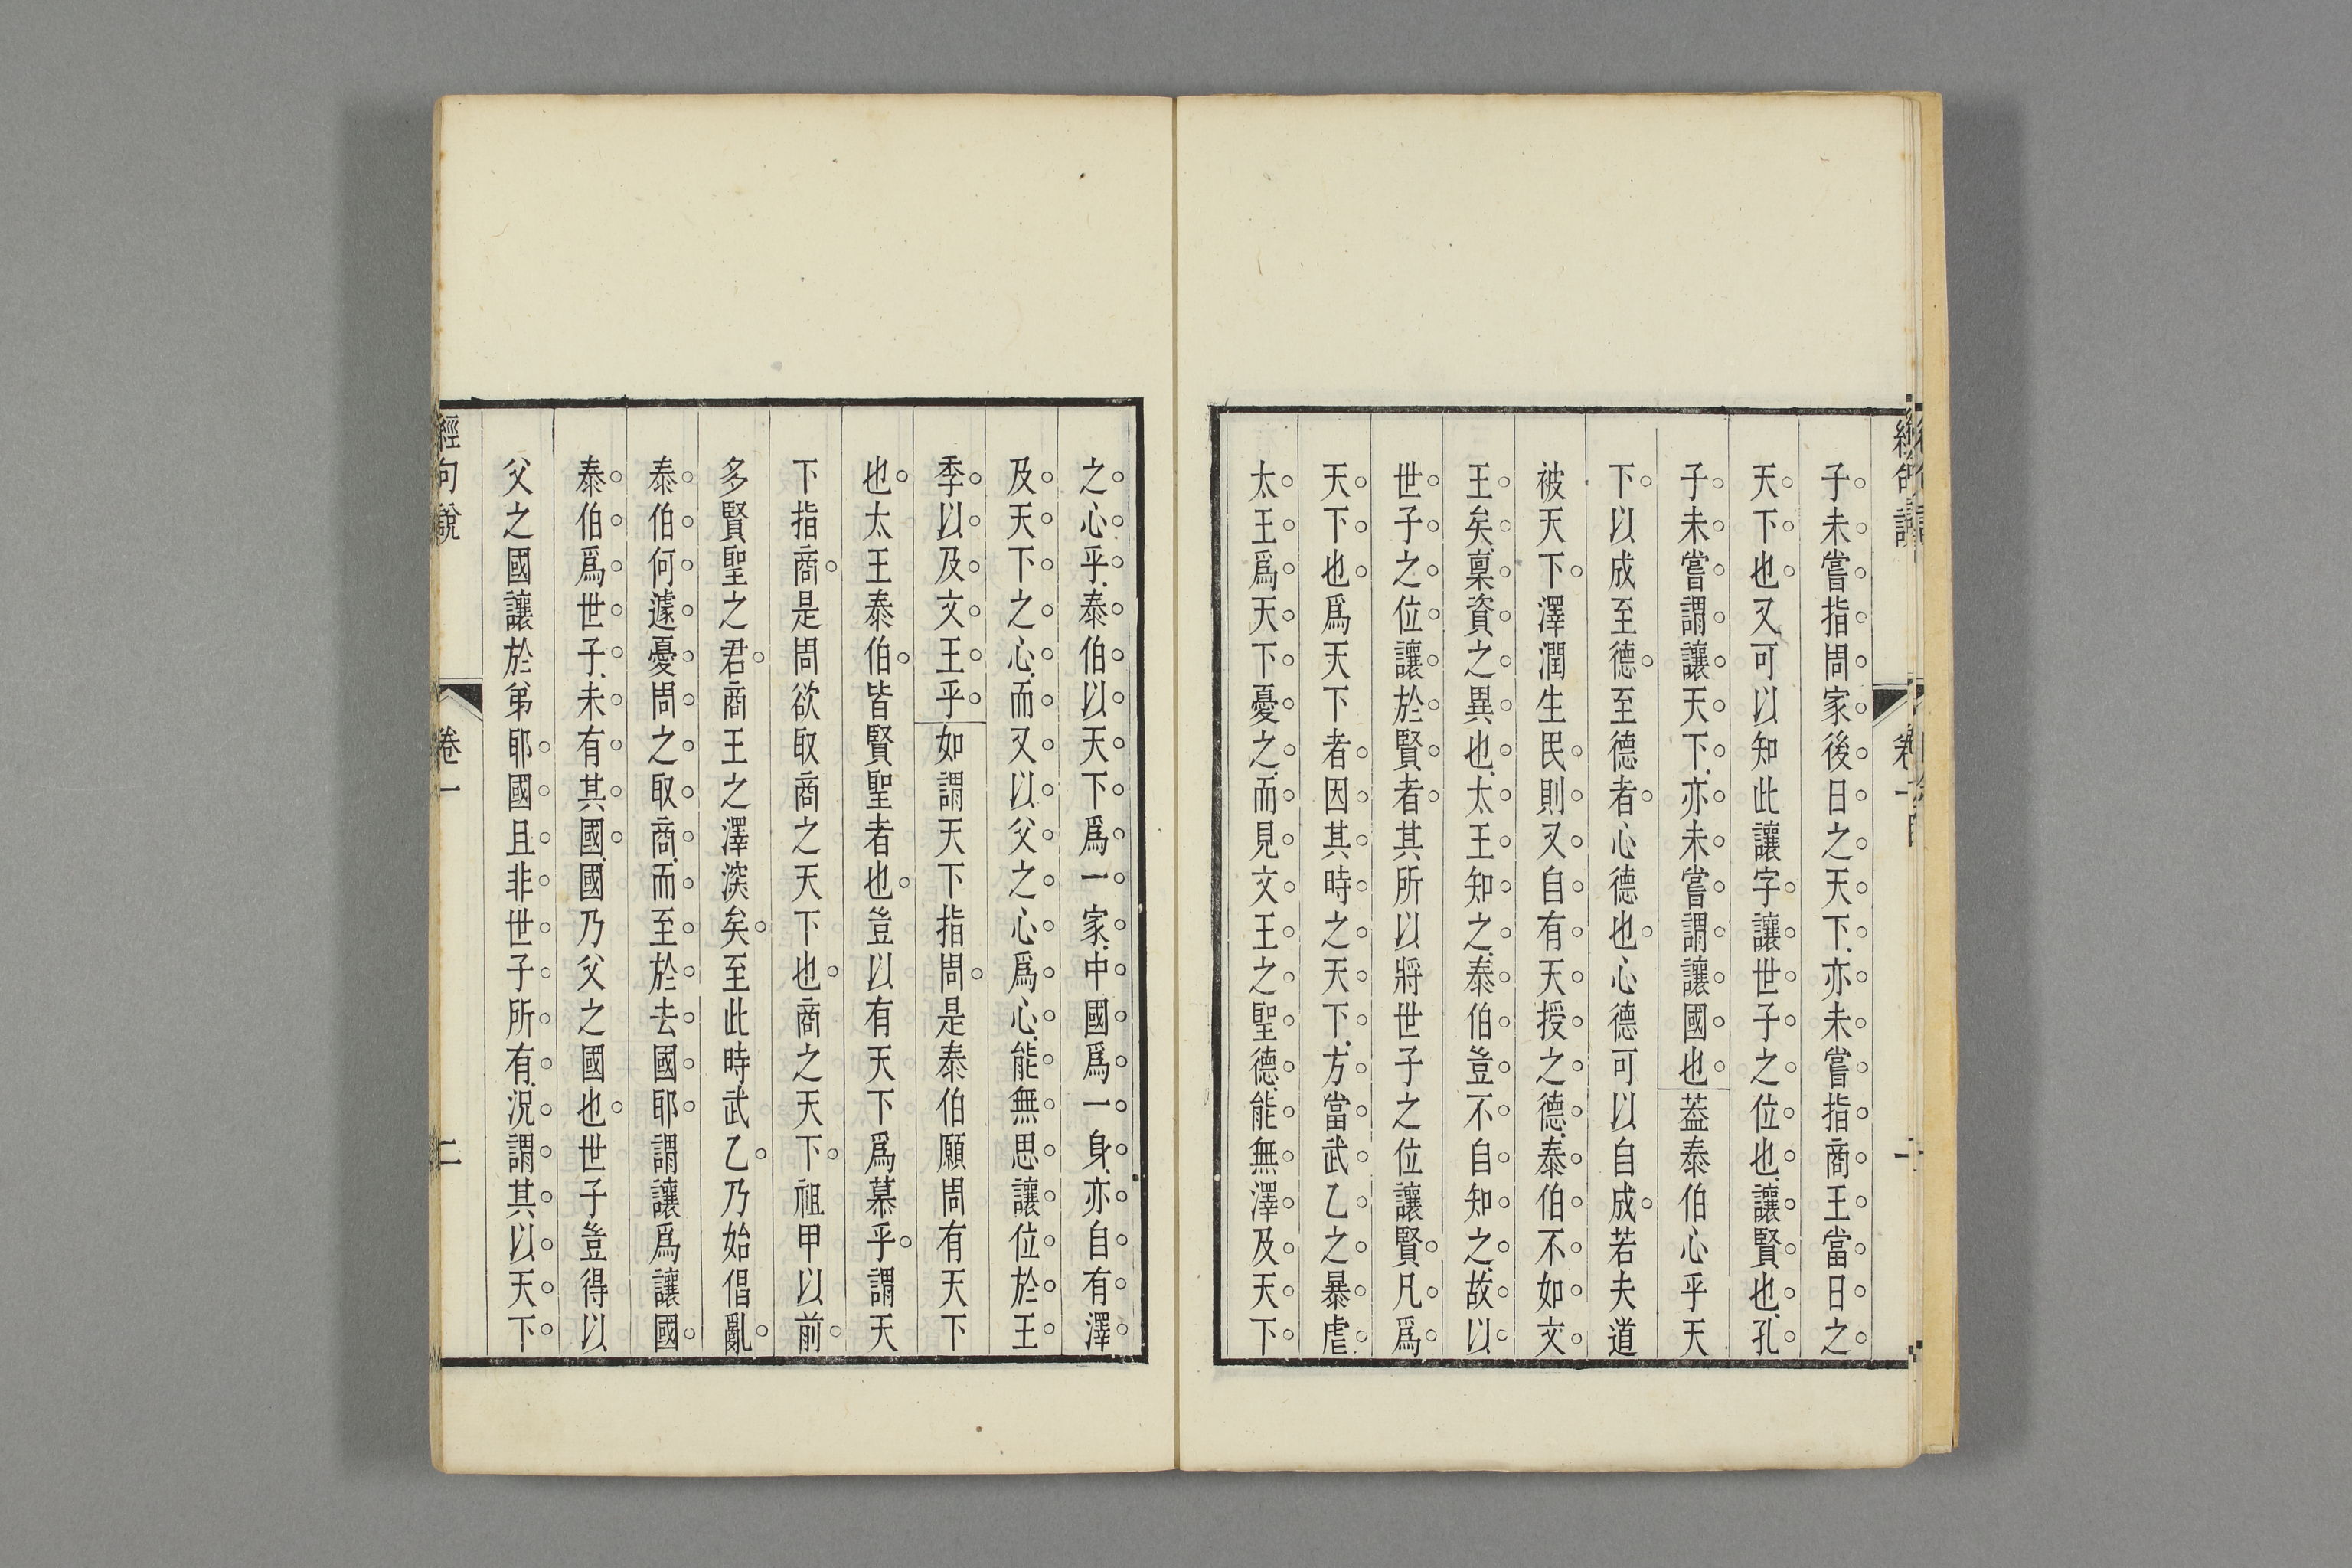 子未嘗指周家後日之天下亦未嘗指商王當日之
天下也又可以知此讓字讓世子之位也讓賢也孔
子未嘗謂讓天下亦未嘗謂讓國也蓋泰伯心乎天
下以成至德至德者心德也心德可以自成若夫道
被天下澤潤生民則又自有天授之德泰伯不如文
王矣稟資之異也太王知之泰伯豈不自知之故以
世子之位讓於賢者其所以將世子之位讓賢凡爲
天下也爲天下者因其時之天下方當武乙之暴虐
太王爲天下憂之而見文王之聖德能無澤及天下
之心乎泰伯以天下爲一家中國爲一身亦自有澤
及天下之心而又以父之心爲心能無思讓位於王
季以及文王乎如謂天下指周是泰伯願周有天下
也太王泰伯皆賢聖者也豈以有天下爲慕乎謂天
下指商是周欲取商之天下也商之天下祖甲以前
多賢聖之君商王之澤深矣至此時武乙乃始倡亂
泰伯何遽憂周之取商而至於去國耶謂讓爲讓國
泰伯爲世子未有其國國乃父之國也世子豈得以
父之國讓於弟耶國且非世子所有況謂其以天下
經句說 卷一 二